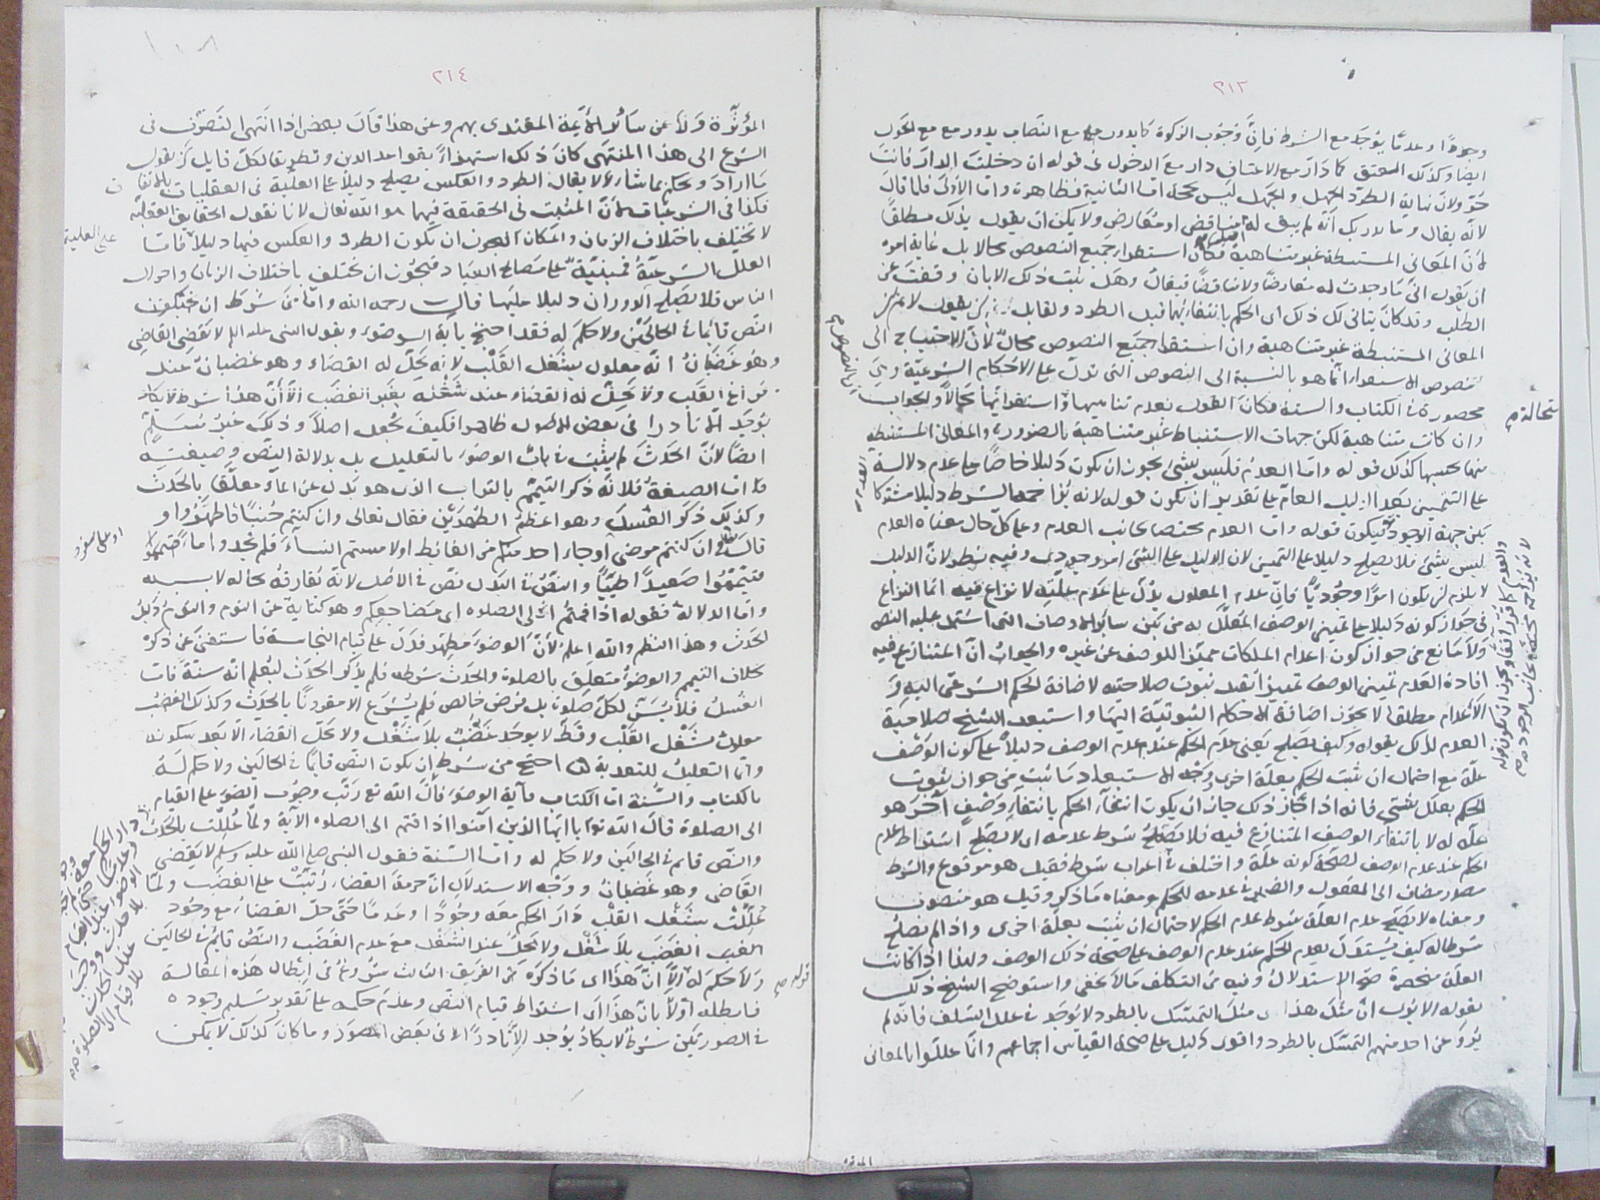 ٢١٣
وجودًا وعدمًا يوجد مع الشرط فإن وجوب الزكوة كما يدور مع النصاب يدور مع الحول
ايضا وكذلك المعتق كما دار مع الاعتاق دار مع الدخول في قوله ان دخلت الدار فانت
حر ولان نهاية الطرد الجهل والجهل ليس بحجة اما الثانية فظاهرة واما الاولى فلما قال
لانه يقال وما يدريك انه لم يبق له مناقض او معارض ولا يمكن ان يقول بذلك مطلقًا
لان المعاني المستنبطة غير متناهية فكان استقراء جميع النصوص محالا بل غاية امره
ان يقول اني ما وجدت له معارضًا ولا مناقضًا فيقال وهل ثبت ذلك الا بان وقفت عن
الطلب
المعاني المستنبطة غير متناهية وان استقراء جميع النصوص محال لان الاحتياج الى
النصوص انما هو بالنسبة الى النصوص التي تدل على الاحكام الشرعية وهي
محصورة في الكتاب والسنة فكان القول بعدم تناهيها واستقرائها محالا والجواب
وان كانت متناهية لكن جهات الاستنباط غير متناهية بالضرورة والمعاني المستنبطة
منها بحسبها كذلك قوله واما العدم فليس بشئ يجوز ان يكون دليلا خاصًا على عدم دلالة
ليس بشئ فلا يصلح دليلا على التمييز لان الدليل على الشئ امر وجودي وفيه نظر لان الدليل
لا يلزم ان يكون امرًا وجوديًا فان عدم المعلول يدل على عدم علته لا نزاع فيه انما النزاع
في جواز كونه دليلا على تمييز الوصف المعلل به من بين سائر الاوصاف التي اشتمل عليه النص
ولا مانع من جواز كون اعدام الملكات مميزا للوصف عن غيره والجواب ان المتنازع فيه
افادة العدم تمييز الوصف تمييزا يفيد ثبوت صلاحيته لاضافة الحكم الشرعي اليه و
الاعدام مطلقا لا يجوز اضافة الاحكام الثبوتية اليها واستبعد الشيخ صلاحية
العدم لذلك بقوله وكيف يصلح يعني عدم الحكم عند عدم الوصف دليلا على كون الوصف
علة مع احتمال ان ثبت الحكم بعلة اخرى ووجه الاستبعاد ما ثبت من جواز ثبوت
الحكم بعلل شتى فانه اذا جاز ذلك جاز ان يكون انتفاء الحكم بانتفاء وصف آخر هو
علة له لا بانتفاء الوصف المتنازع فيه فلا يصلح شرط عدمه اي لا يصلح اشتراط عدم
الحكم عند عدم الوصف لصحة كونه علة واختلف في اعراب شرط فقيل هو مرفوع والشرط
مصدر مضاف الى المفعول والضمير في عدمه للحكم ومعناه ما ذكر وقيل هو منصوب
ومعناه لا يصلح عدم العلة شرط عدم الحكم لاحتمال ان يثبت بعلة اخرى واذا لم يصلح
شرطا له كيف يستدل بعدم الحكم عند عدم الوصف على صحة ذلك الوصف ولهذا اذا كانت
العلة منحصرة صح الاستدلال وفيه من التكلف ما لا يخفى واستوضح الشيخ ذلك
بقوله الا يرى ان مثل هذا من مثل التمسك بالطرد لا يوجد في علل السلف فانه لم
يرو عن احد منهم التمسك بالطرد واقوى دليل على صحة القياس اجماعهم وانما عللوا بالمعاني
المؤثرة
٢١٤
المؤثرة ولا عن سائر الائمة المقتدى بهم وعن هذا قال بعض اذا انتهى التصرف في
الشرع الى هذا المنتهى كان ذلك استهزاءً بقواعد الدين وتطريقا لكل قايل ان يقول
ما اراد ويحكم بما شاء ولا يقال الطرد والعكس يصلح دليلا على العلية في العقليات بالاتفاق
فكذا في الشرعيات لان المثبت في الحقيقة فيها هو الله تعالى لانا نقول الحقايق العقلية
لا تختلف باختلاف الزمان والمكان فيجوز ان يكون الطرد والعكس فيها دليلا فاما
العلل الشرعية فمبنية على مصالح العباد فيجوز ان تختلف باختلاف الزمان واحوال
الناس فلا يصلح الدوران دليلا عليها قال رحمه الله واما من شرط ان يكون
النص قائما في الحالتين ولا حكم له فقد احتج باية الوضوء وبقول النبي عليه السلام لا يقضي القاضي
وهو غضبان انه معلول بشغل القلب لانه يحل له القضاء وهو غضبان عند
فراغ القلب ولا يحل له القضاء عند شغله بغير الغضب الا ان هذا شرط لا يكاد
يوجد الا نادرا في بعض الاصول ظاهرا فكيف يجعل اصلا وذلك غير مسلم
ايضا لان الحدث لم يثبت في باب الوضوء بالتعليل بل بدلالة النص وصيغته
اما الصيغة فلانه ذكر التيمم بالتراب الذي هو بدل عن الماء معلقا بالحدث
وكذلك ذكر الغسل وهو اعظم الطهرين فقال تعالى وان كنتم جنبًا فاطهروا و
قال وان كنتم مرضى او جاء احد منكم من الغائط او لامستم النساء فلم تجدوا ماء
فتيمموا صعيدًا طيبًا والنص في البدل نص في الاصل لانه يفارقه بحاله لا بسببه
واما الدلالة فقوله اذا قمتم الى الصلوة اي من مضاجعكم وهو كناية عن النوم والنوم دليل
الحدث وهذا النظم والله اعلم لان الوضوء مطهر فدل على قيام النجاسة فاستغنى عن ذكره
بخلاف التيمم والوضوء متعلق بالصلوة والحدث شرطه فلم يذكر الحدث ليعلم انه سنة فاما
الغسل فلا يسن لكل صلوة بل فرض خالص فلم يشرع الا مقرونا بالحدث وكذلك الغضب
معلول بشغل القلب وقط لا يوجد غضب بلا شغل ولا يحل القضاء الا بعد سكونه
واما التعليل للتعدية احتج من شرط ان يكون النص قائما في الحالتين ولا حكم له
بالكتاب والسنة اما الكتاب فآية الوضوء فان الله تع رتب وجوب الوضوء على القيام
الى الصلوة قال الله تع يا ايها الذين آمنوا اذا قمتم الى الصلوة الآية ولما عللت بالحدث
والنص قائم في الحالين ولا حكم له واما السنة فقول النبي صلى الله عليه وسلم لا يقضي
القاضي وهو غضبان ووجه الاستدلال ان حرمة القضاء رتبت على الغضب ولما
عللت بشغل القلب دار الحكم معه وجودًا وعدمًا حتى حل القضاء مع وجود
الغضب بلا شغل ولا يحل عند الشغل مع عدم الغضب والنص قائم في الحالين
ولا حكم له الا ان هذا اي ما ذكره من الفريق الثالث شروع في ابطال هذه المقالة
فابطله اولا بان هذا اي اشتراط قيام النص وعدم حكمه على تقدير تسليم وجوده
في الصورتين شرط لا يكاد يوجد الا نادرًا الا في بعض الصور وما كان كذلك لا يمكن